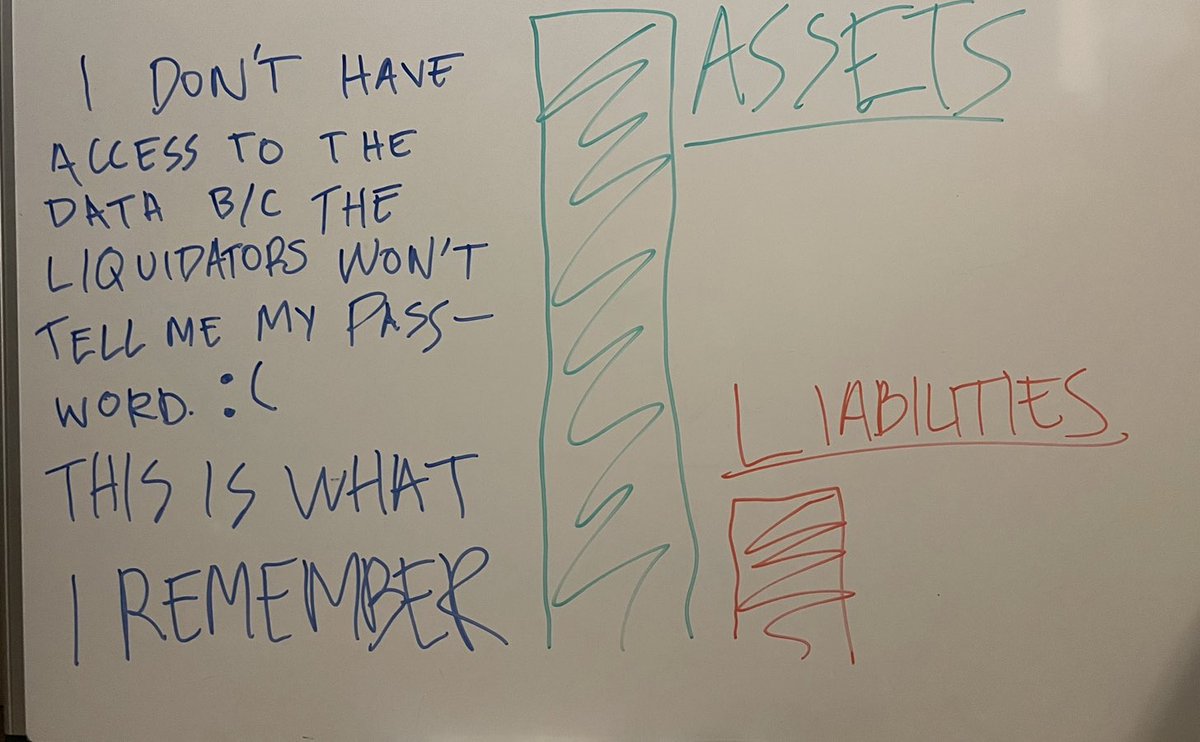 I DON'T HAVE
ACCESS TO THE
DATA B/C THE
LIQUIDATORS WON'T
TELL ME MY PASS-
WORD. :(
THIS IS WHAT
I REMEMBER
ASSETS
LIABILITIES